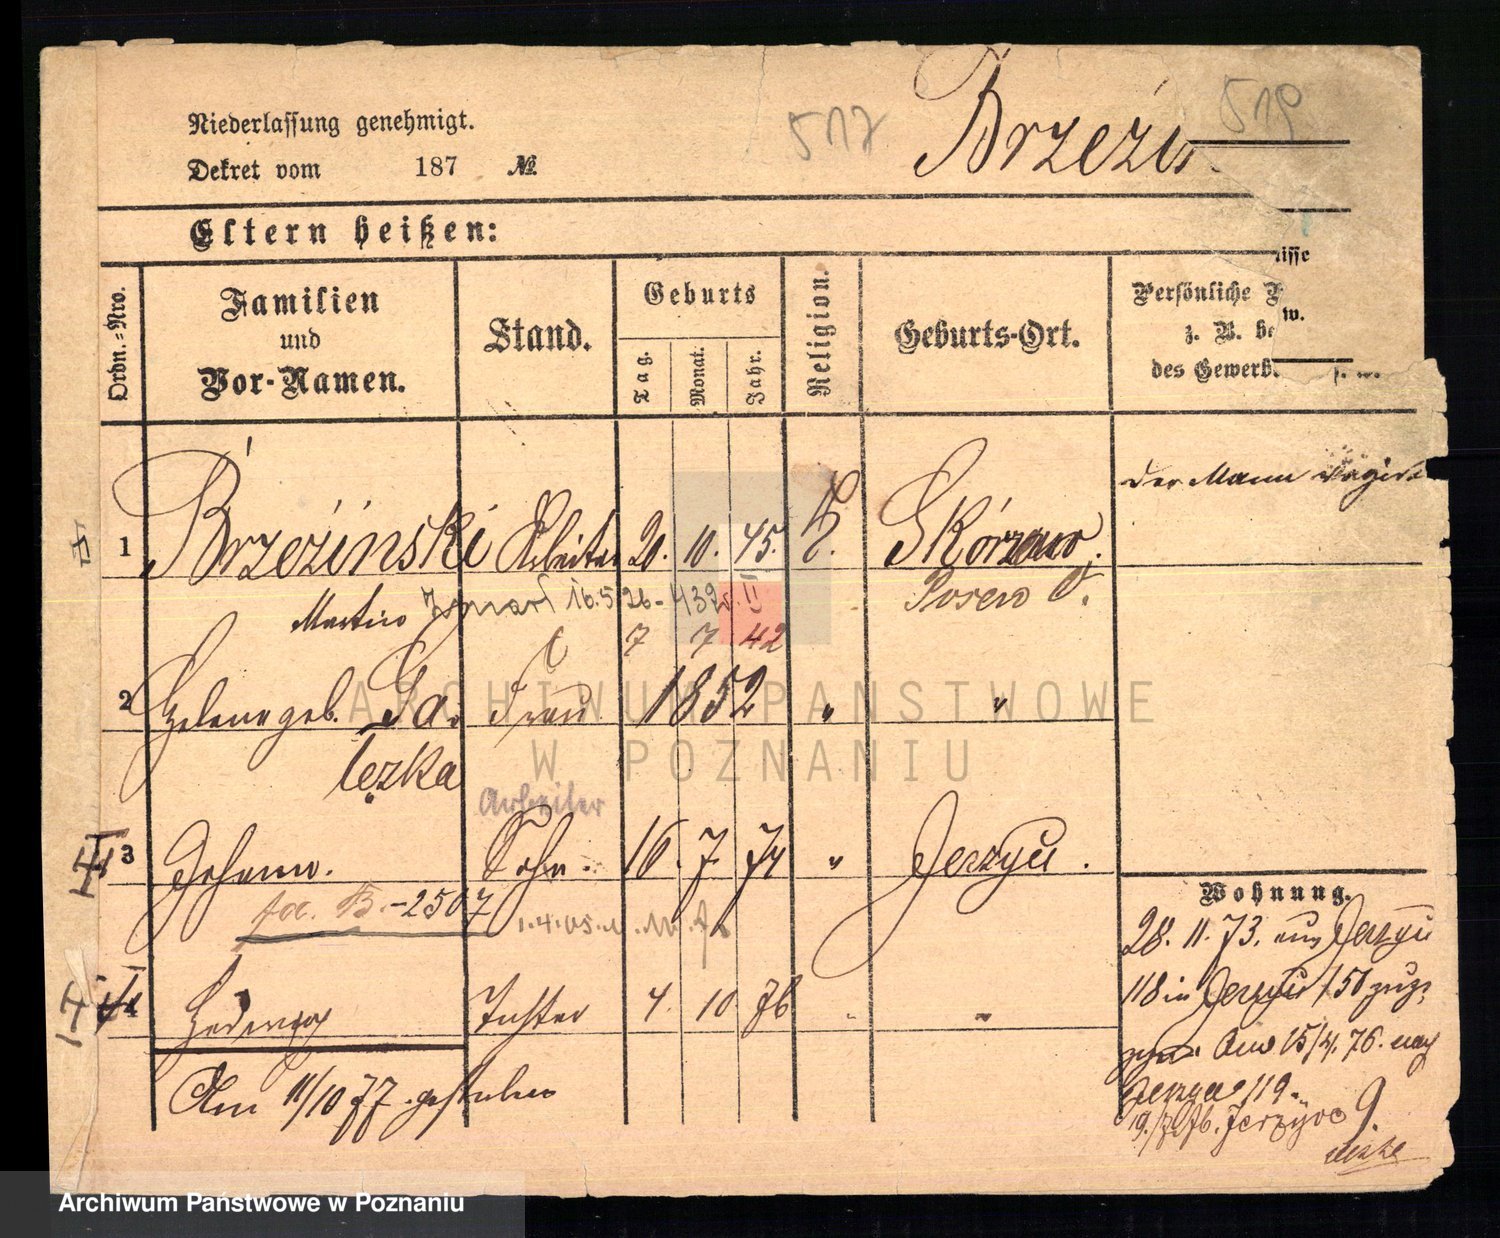 Niederlassung genehmigt.
Dekret vom 187 №
517
519
Brzezi
Eltern heißen:
Ordn.-Nro.
Familien und Vor-Namen.
Stand.
Geburts
Tag.
Monat.
Jahr.
Religion.
Geburts-Ort.
Persönliche
z. B. be
des Gewerb.
isse
w.
s. w.
Der Mann
1 Brzeżinski Arbeiter 20. 10. 45. K. Skórzewo.
Martin 16.5.26 - 439 II Posen O.
7 7 42
2 Helene geb. Ga- Frau 1852 " "
łęzka
Arbeiter
3 Johann. Sohn. 16. 7. 74 " Jerzyce.
B. - 2507 1.4.05.
4 Hedwig Tochter 4. 10 76 " "
Am 11/10 77. gestorben
Wohnung.
28. 11. 73. aus Jerzyce
118 in Jerzyce 150 zugez
Am 15/4. 76. nach
Jerzyce 119.
Jerzyce 9.
ARCHIWUM PAŃSTWOWE
W POZNANIU
Archiwum Państwowe w Poznaniu